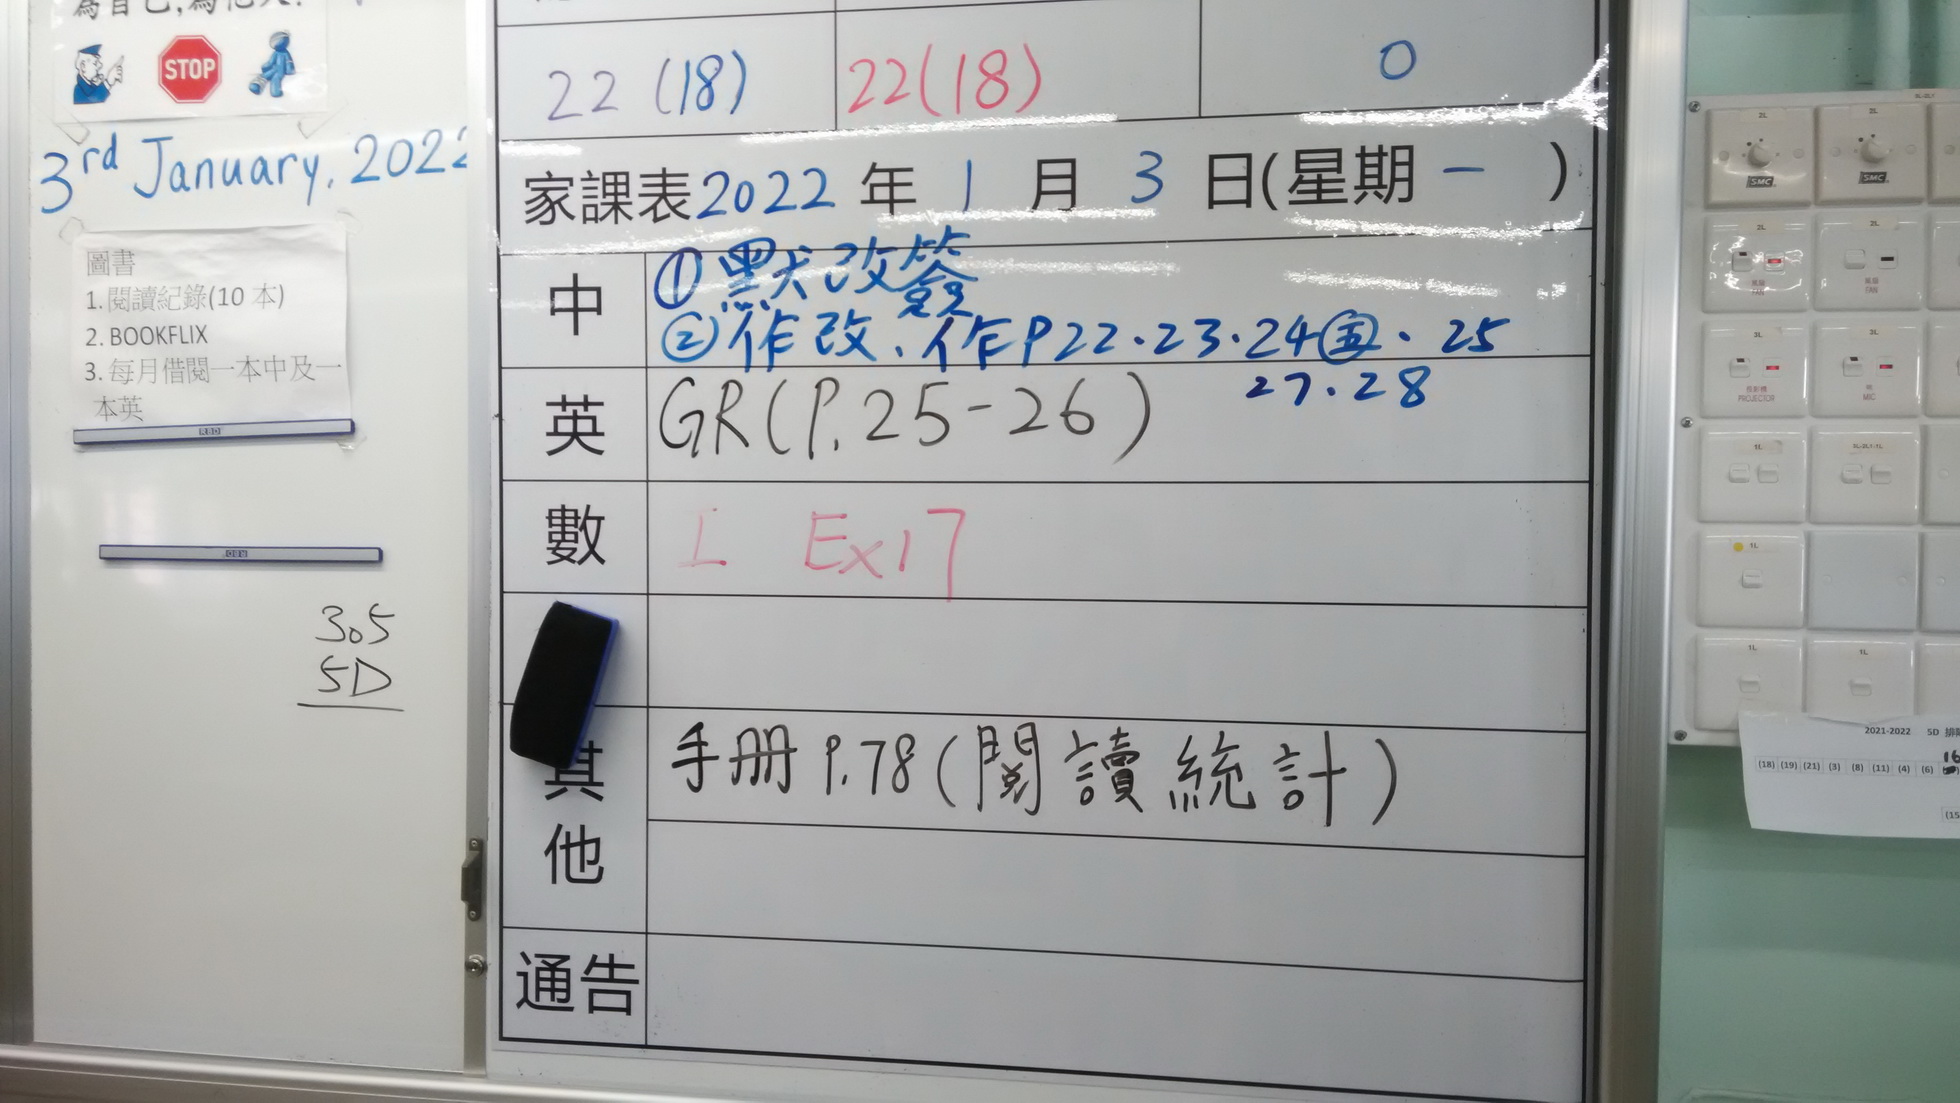 STOP
3rd January, 2022
圖書
1. 閱讀紀錄(10 本)
2. BOOKFLIX
3. 每月借閱一本中及一
本英
305
5D
22 (18) 22(18) 0
家課表2022 年 1 月 3 日(星期 一 )
中 ①默改簽
②作改、作P22.23.24㊄.25
27.28
英 GR(P.25-26)
數 I Ex17
其他 手冊 P.78(閱讀統計)
通告
2L 2L
SMC SMC
2L 2L
風扇 風扇
FAN FAN
3L 2L
投影機 咪
PROJECTOR MIC
1L
1L
1L 1L
2021-2022 5D
(18) (19) (21) (3) (8) (11) (4) (6) 16
(15